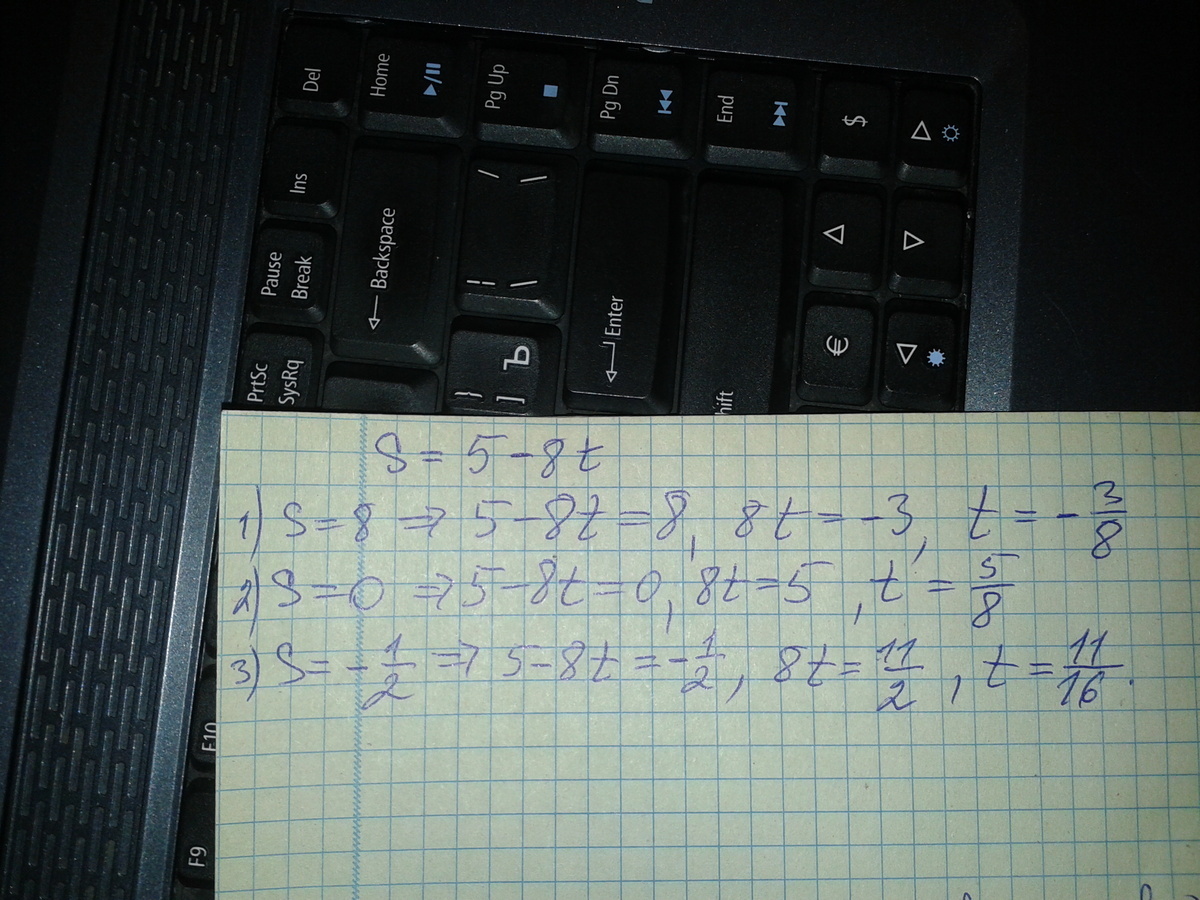 Del
Home
Pg Up
Pg Dn
End
$
Ins
Backspace
Pause
Break
Enter
€
PrtSc
SysRq
} ] Ъ
hift
F10
F9
S = 5 - 8t
1) S = 8 ⇒ 5 - 8t = 8, 8t = -3, t = -3/8
2) S = 0 ⇒ 5 - 8t = 0, 8t = 5, t = 5/8
3) S = -1/2 ⇒ 5 - 8t = -1/2, 8t = 11/2, t = 11/16.